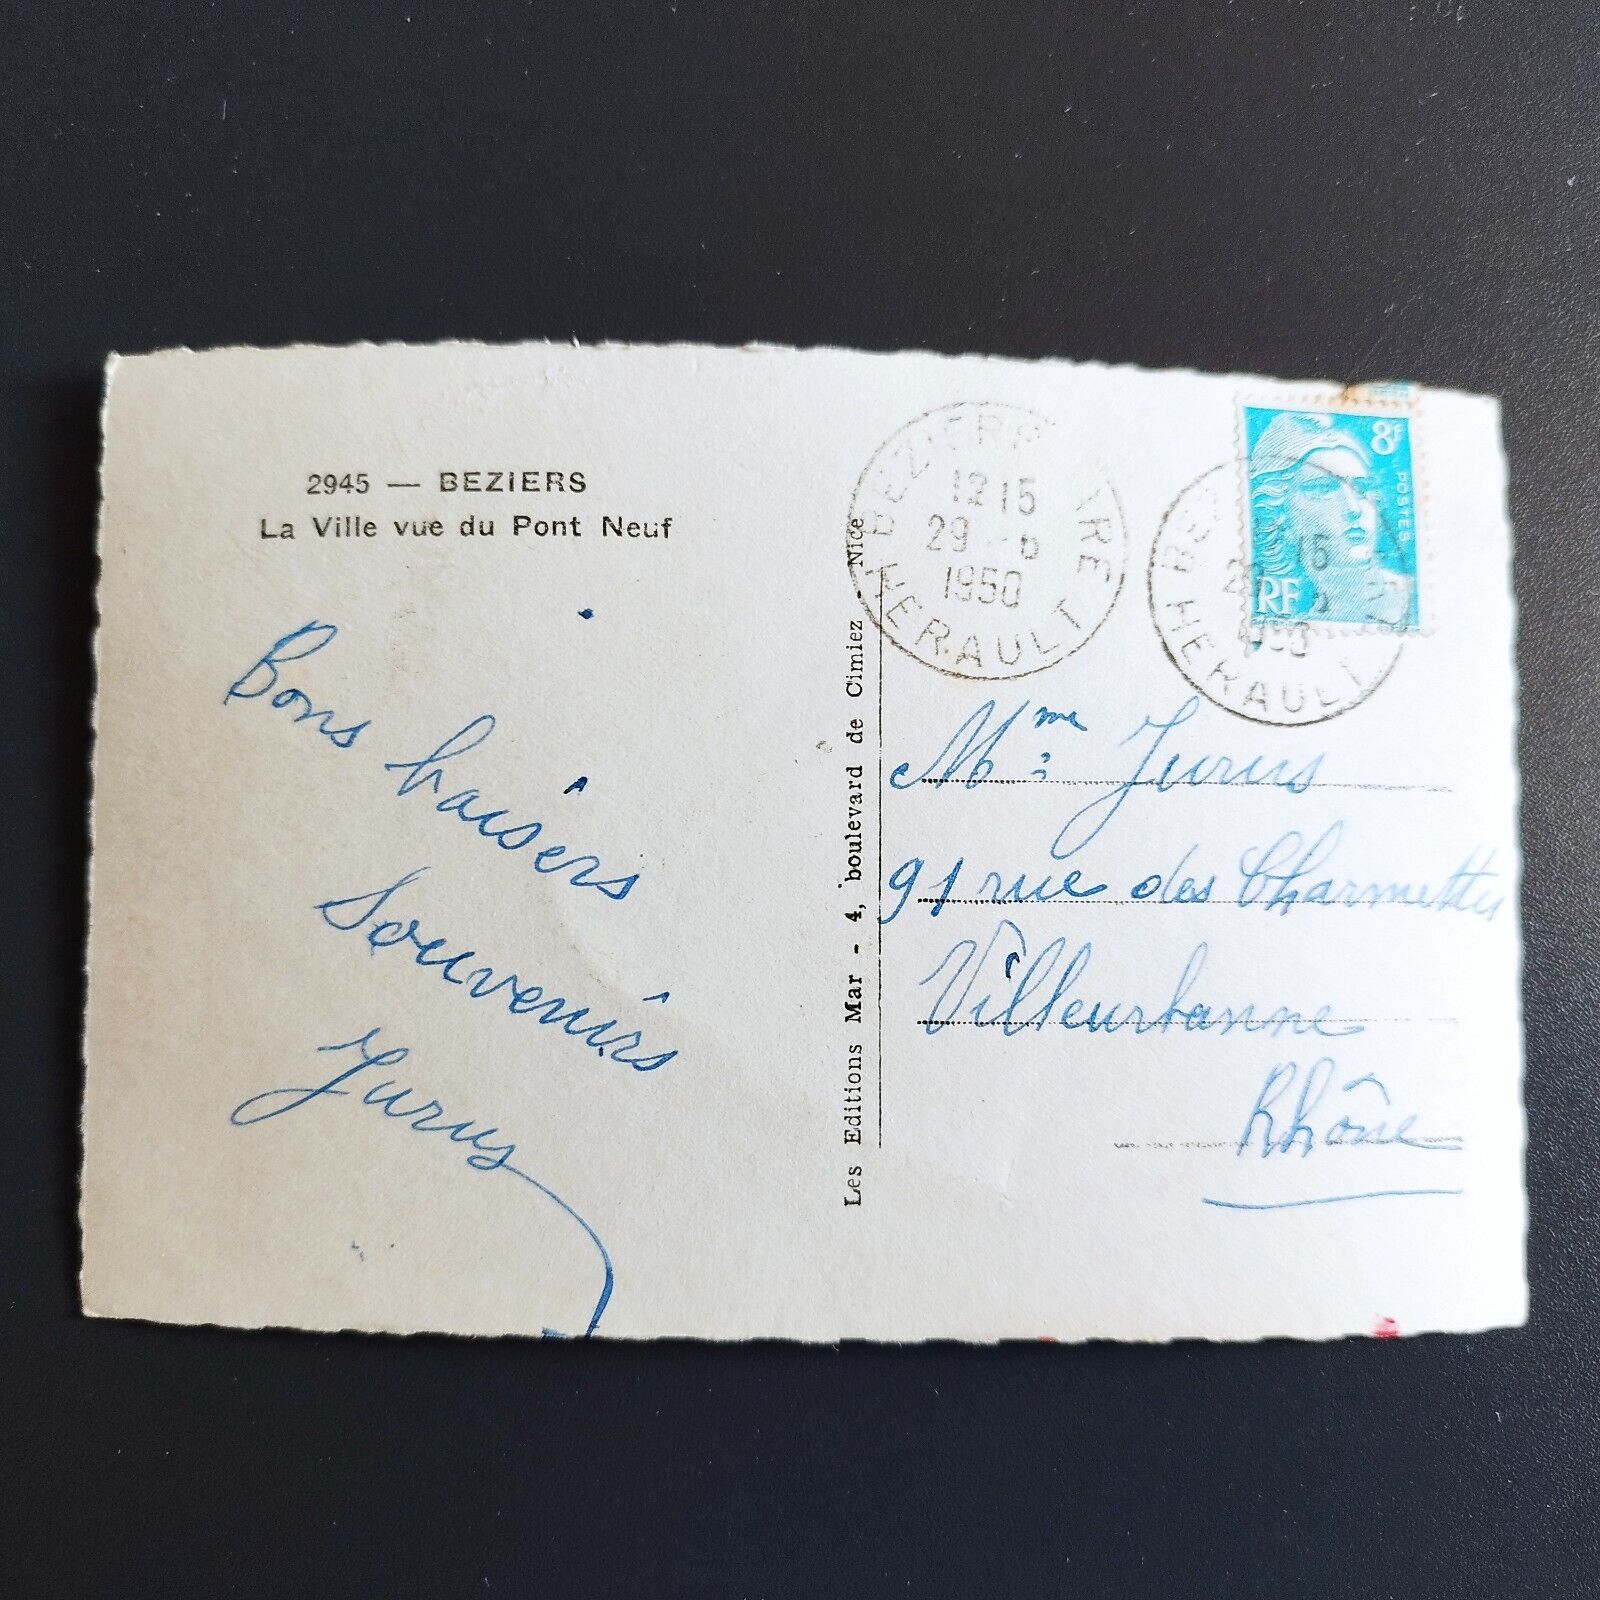 2945 — BEZIERS
La Ville vue du Pont Neuf
Bons baisers
Souvenirs
Jurus
Les Editions Mar - 4, boulevard de Cimiez - Nice
BEZIERS GARE
12 15
29
1950
HERAULT
8F
POSTES
RF
15
HERAULT
Mme Jurus
91 rue des Charmettes
Villeurbanne
Rhône